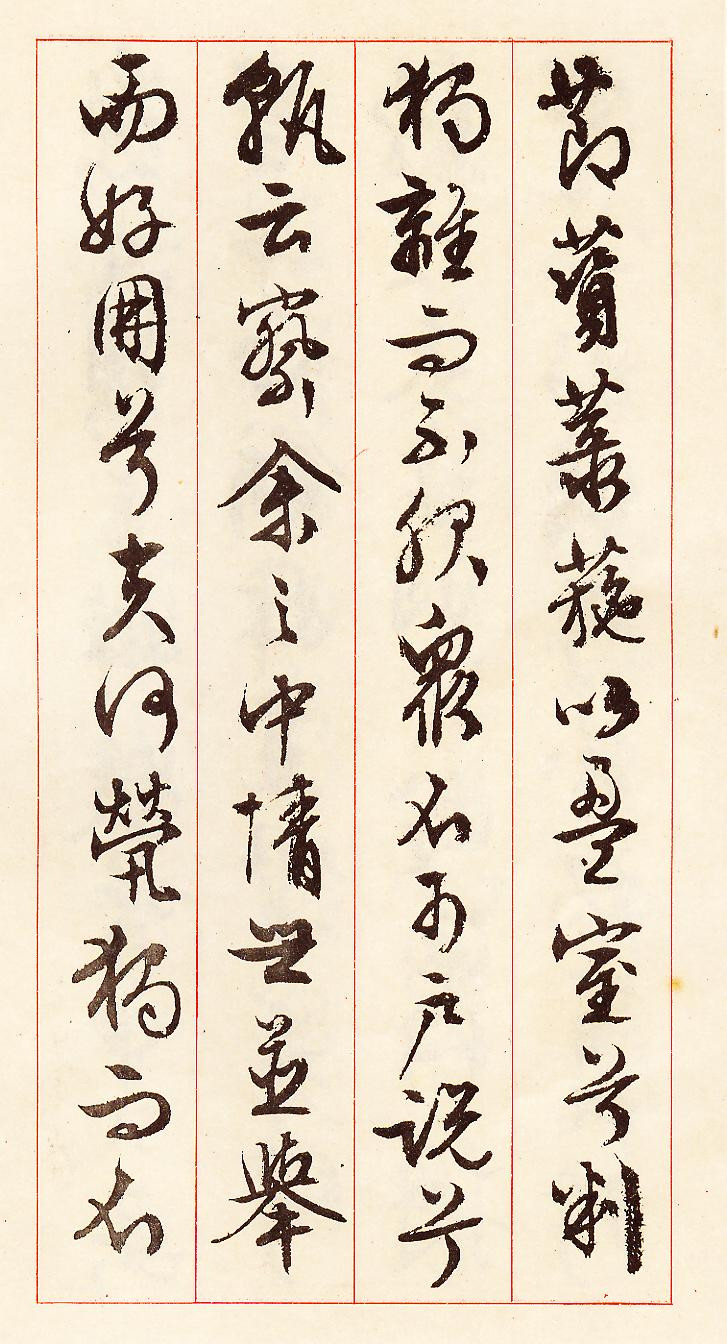 節薋菉葹以盈室兮判
獨離而不服衆不可户說兮
孰云察余之中情世並舉
而好朋兮夫何煢獨而不